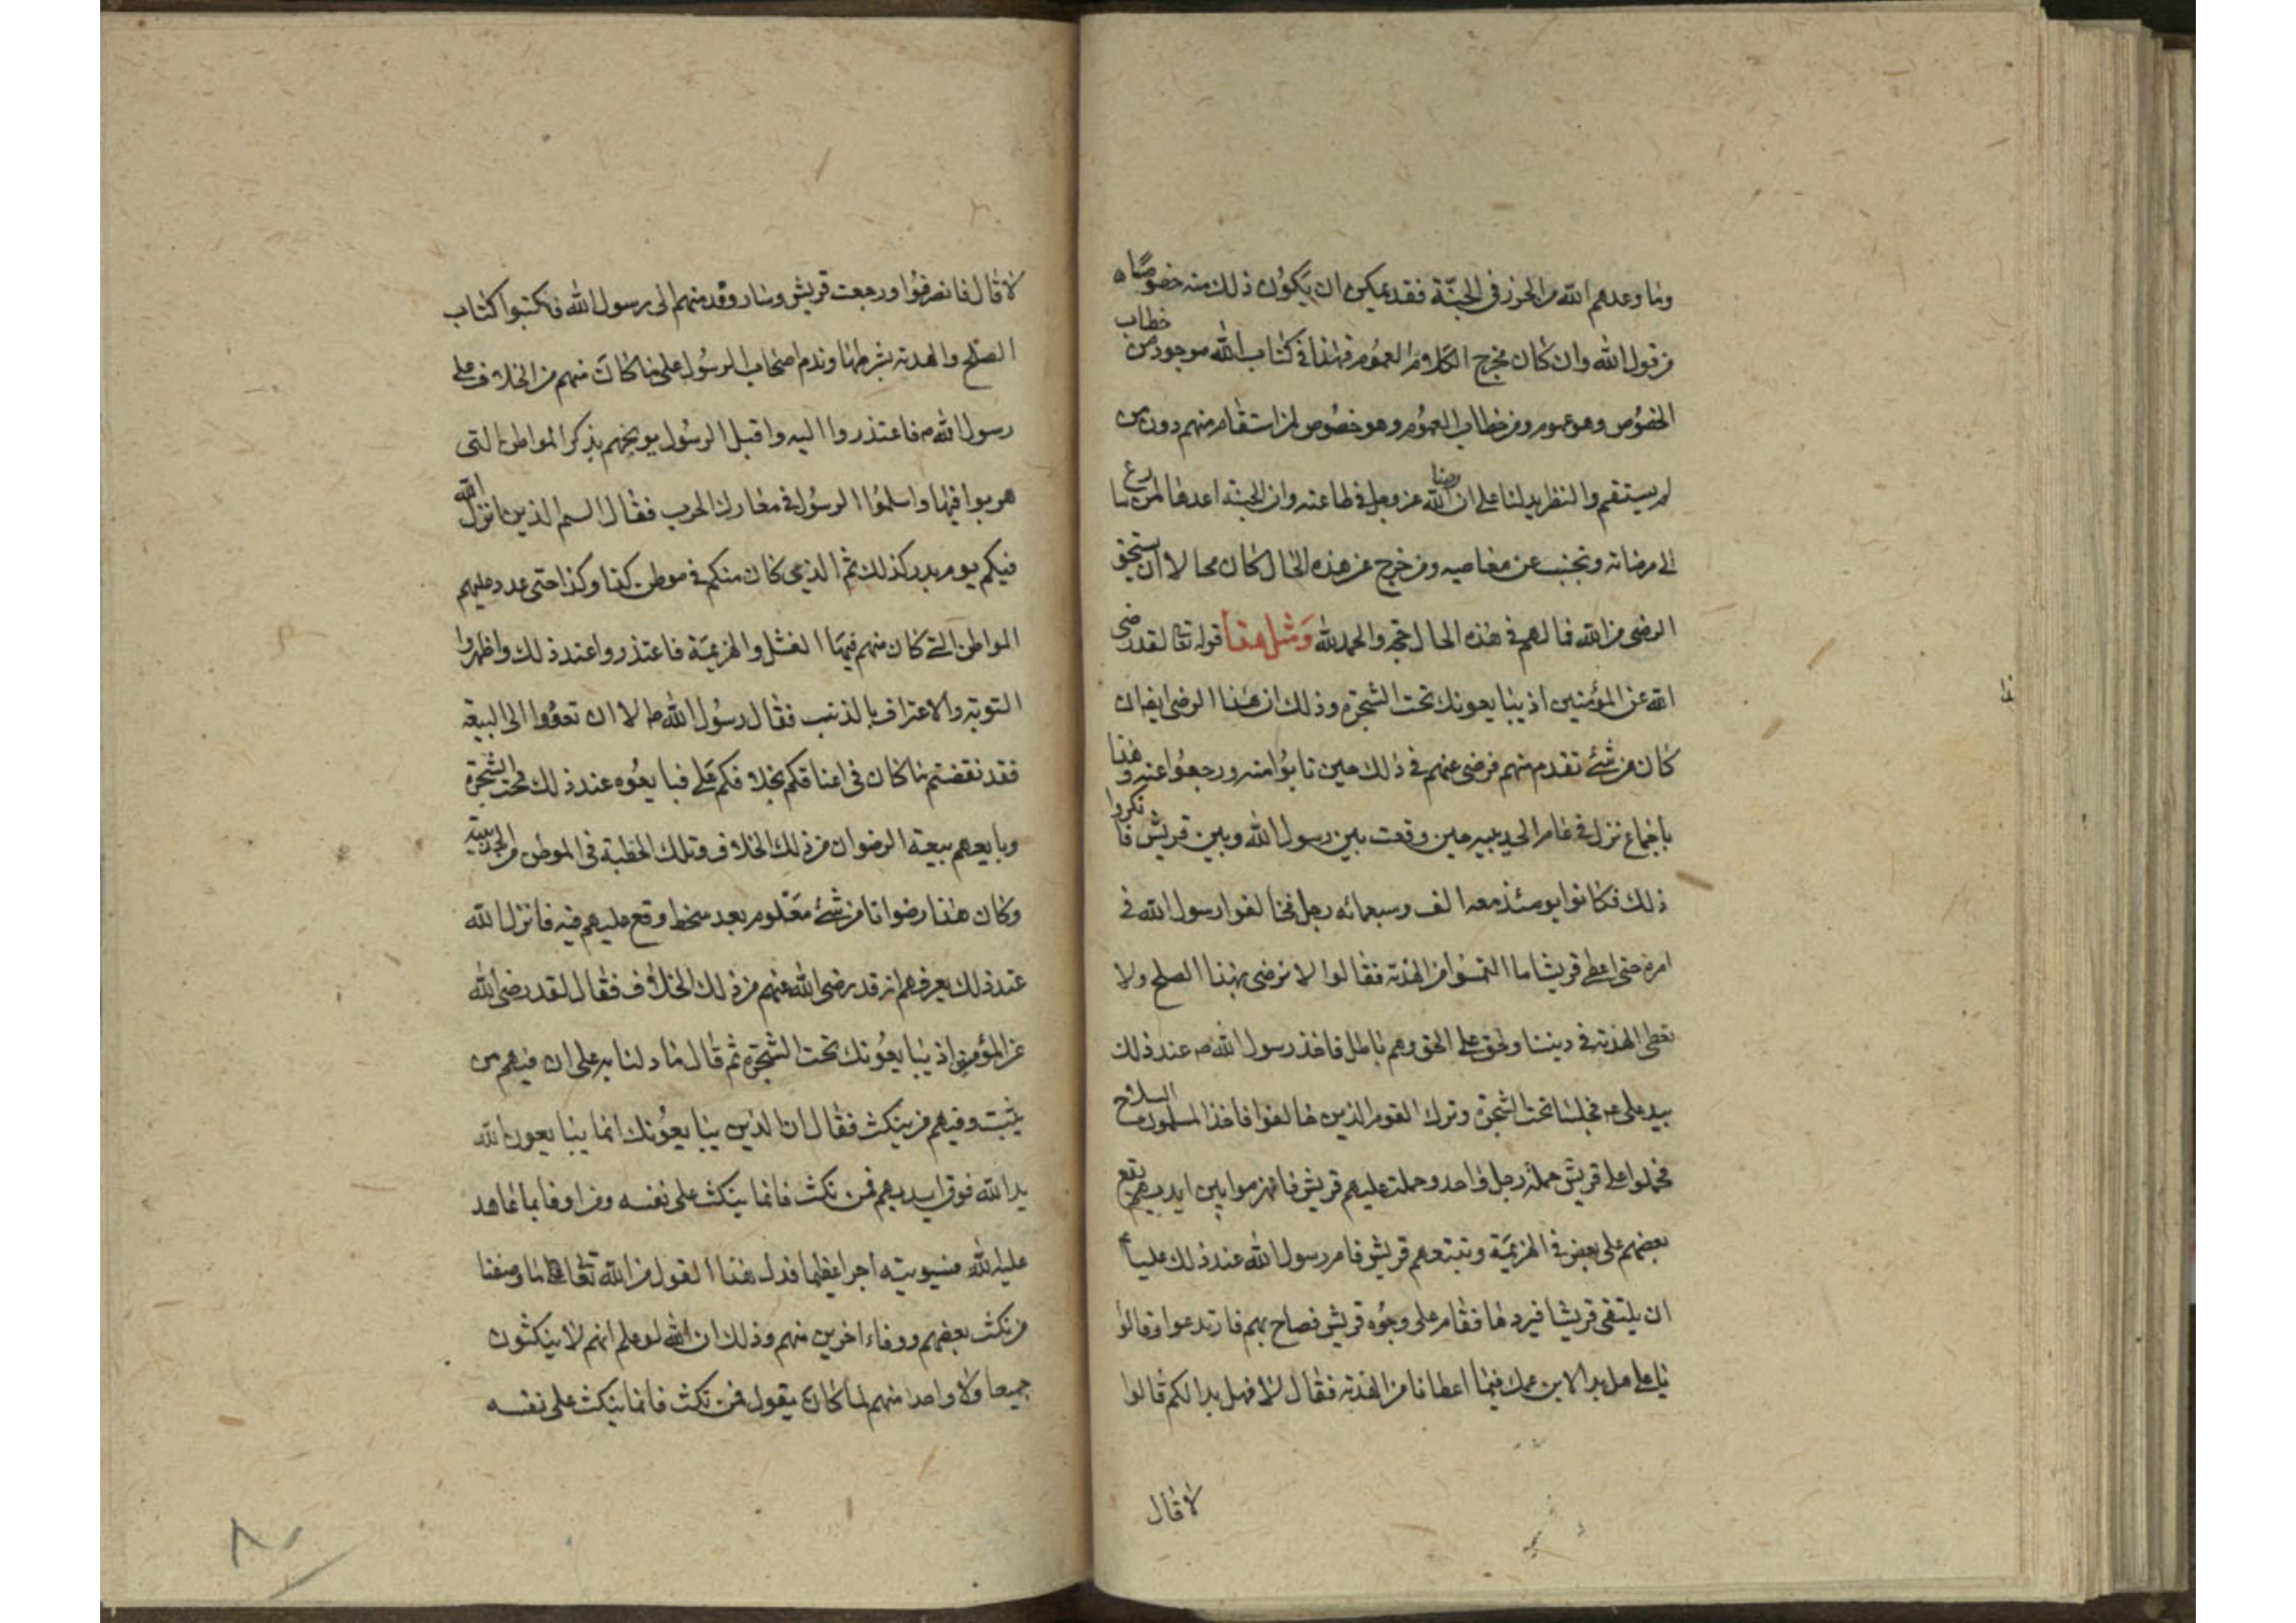 وما وعدهم الله من الحوز في الجنة فقد يمكن ان يكون ذلك منه خصوصا
من قول الله وان كان مخرج الكلام من العموم فهذا في كتاب الله موجود من خطاب
الخصوص وهو عموم ومن خطاب العموم وهو خصوص لمن استقام منهم دون من
لم يستقم والنظر يدلنا على ان رضا الله عز وجل في طاعته وان الجنة اعدها لمن سارع
الى مرضاته وتجنب عن معاصيه ومن خرج عن هذه الحال كان محالا ان يستحق
الرضى من الله فما لهم في هذه الحال حجة والحمد لله ومثل هذا قوله تعا لقد رضى
الله عن المؤمنين اذ يبايعونك تحت الشجرة وذلك ان هذا الرضى ايضا
كان من شئ تقدم منهم فرضى عنهم في ذلك حين تابوا منه ورجعوا عنه وهذا
باجماع نزل في عام الحديبيه حين وقعت بين رسول الله وبين قريش فانكروا
ذلك فكانوا يومئذ معه الف وسبعمائه رجل فخالفوا رسول الله في
امره حتى اعطى قريشا ما التمسوا من الهدنة فقالوا لا نرضى بهذا الصلح ولا
نعطى الهدنة في ديننا ونحن على الحق وهم باطل فاخذ رسول الله ص عند ذلك
بيد على ع فجلسا تحت الشجرة وترك القوم الذين خالفوا فاخذ المسلمون السلاح
فحملوا على قريش حملة رجل واحد وحملت عليهم قريش فانهزموا بين ايديهم يقع
بعضهم على بعض في الهزيمة وتبتعهم قريش فامر رسول الله عند ذلك عليا ع
ان يلتقى قريشا فيردها فقام على وجوه قريش فصاح بهم فارتدعوا وقالوا
يا على هل بدا لابن عمك فيما اعطانا من الهدنة فقال لا فهل بدا لكم قالوا
لا قال
لا قال فانصرفوا ورجعت قريش وسار وفد منهم الى رسول الله فكتبوا كتاب
الصلح والهدنة بشرطها وندم اصحاب الرسول على ما كان منهم من الخلاف على
رسول الله ص فاعتذروا اليه واقبل الرسول يوبخهم بذكر المواطن التى
هربوا فيها واسلموا الرسول في معارك الحرب فقال الستم الذين انزل الله
فيكم يوم بدر كذلك ثم الذي كان منكم في موطن كذا وكذا حتى عدد عليهم
المواطن التى كان منهم فيها الفشل والهزيمة فاعتذروا عند ذلك واظهروا
التوبة والاعتراف بالذنب فقال رسول الله ص لا ان تعودوا الى البيعة
فقد نقضتم ما كان في اعناقكم بخلافكم على فبايعوه عند ذلك تحت الشجرة
وبايعهم بيعة الرضوان من ذلك الخلاف وتلك الخطبة في الموطن من الحديبية
وكان هذا رضوانا من شئ معلوم بعد سخط وقع عليهم فيه فانزل الله
عند ذلك يعرفهم انه قد رضى الله عنهم من ذلك الخلاف فقال لقد رضى الله
عن المؤمنين اذ يبايعونك تحت الشجرة ثم قال ما دلنا به على ان فيهم من
يثبت وفيهم من ينكث فقال ان الذين يبايعونك انما يبايعون الله
يد الله فوق ايديهم فمن نكث فانما ينكث على نفسه ومن اوفا بما عاهد
عليه الله فسيوتيه اجرا عظيما فدل هذا القول من الله تعالى على ما وصفنا
من نكث بعضهم ووفاء اخرين منهم وذلك ان الله لو علم انهم لا ينكثون
جميعا ولا واحدا منهم لما كان يقول فمن نكث فانما ينكث على نفسه